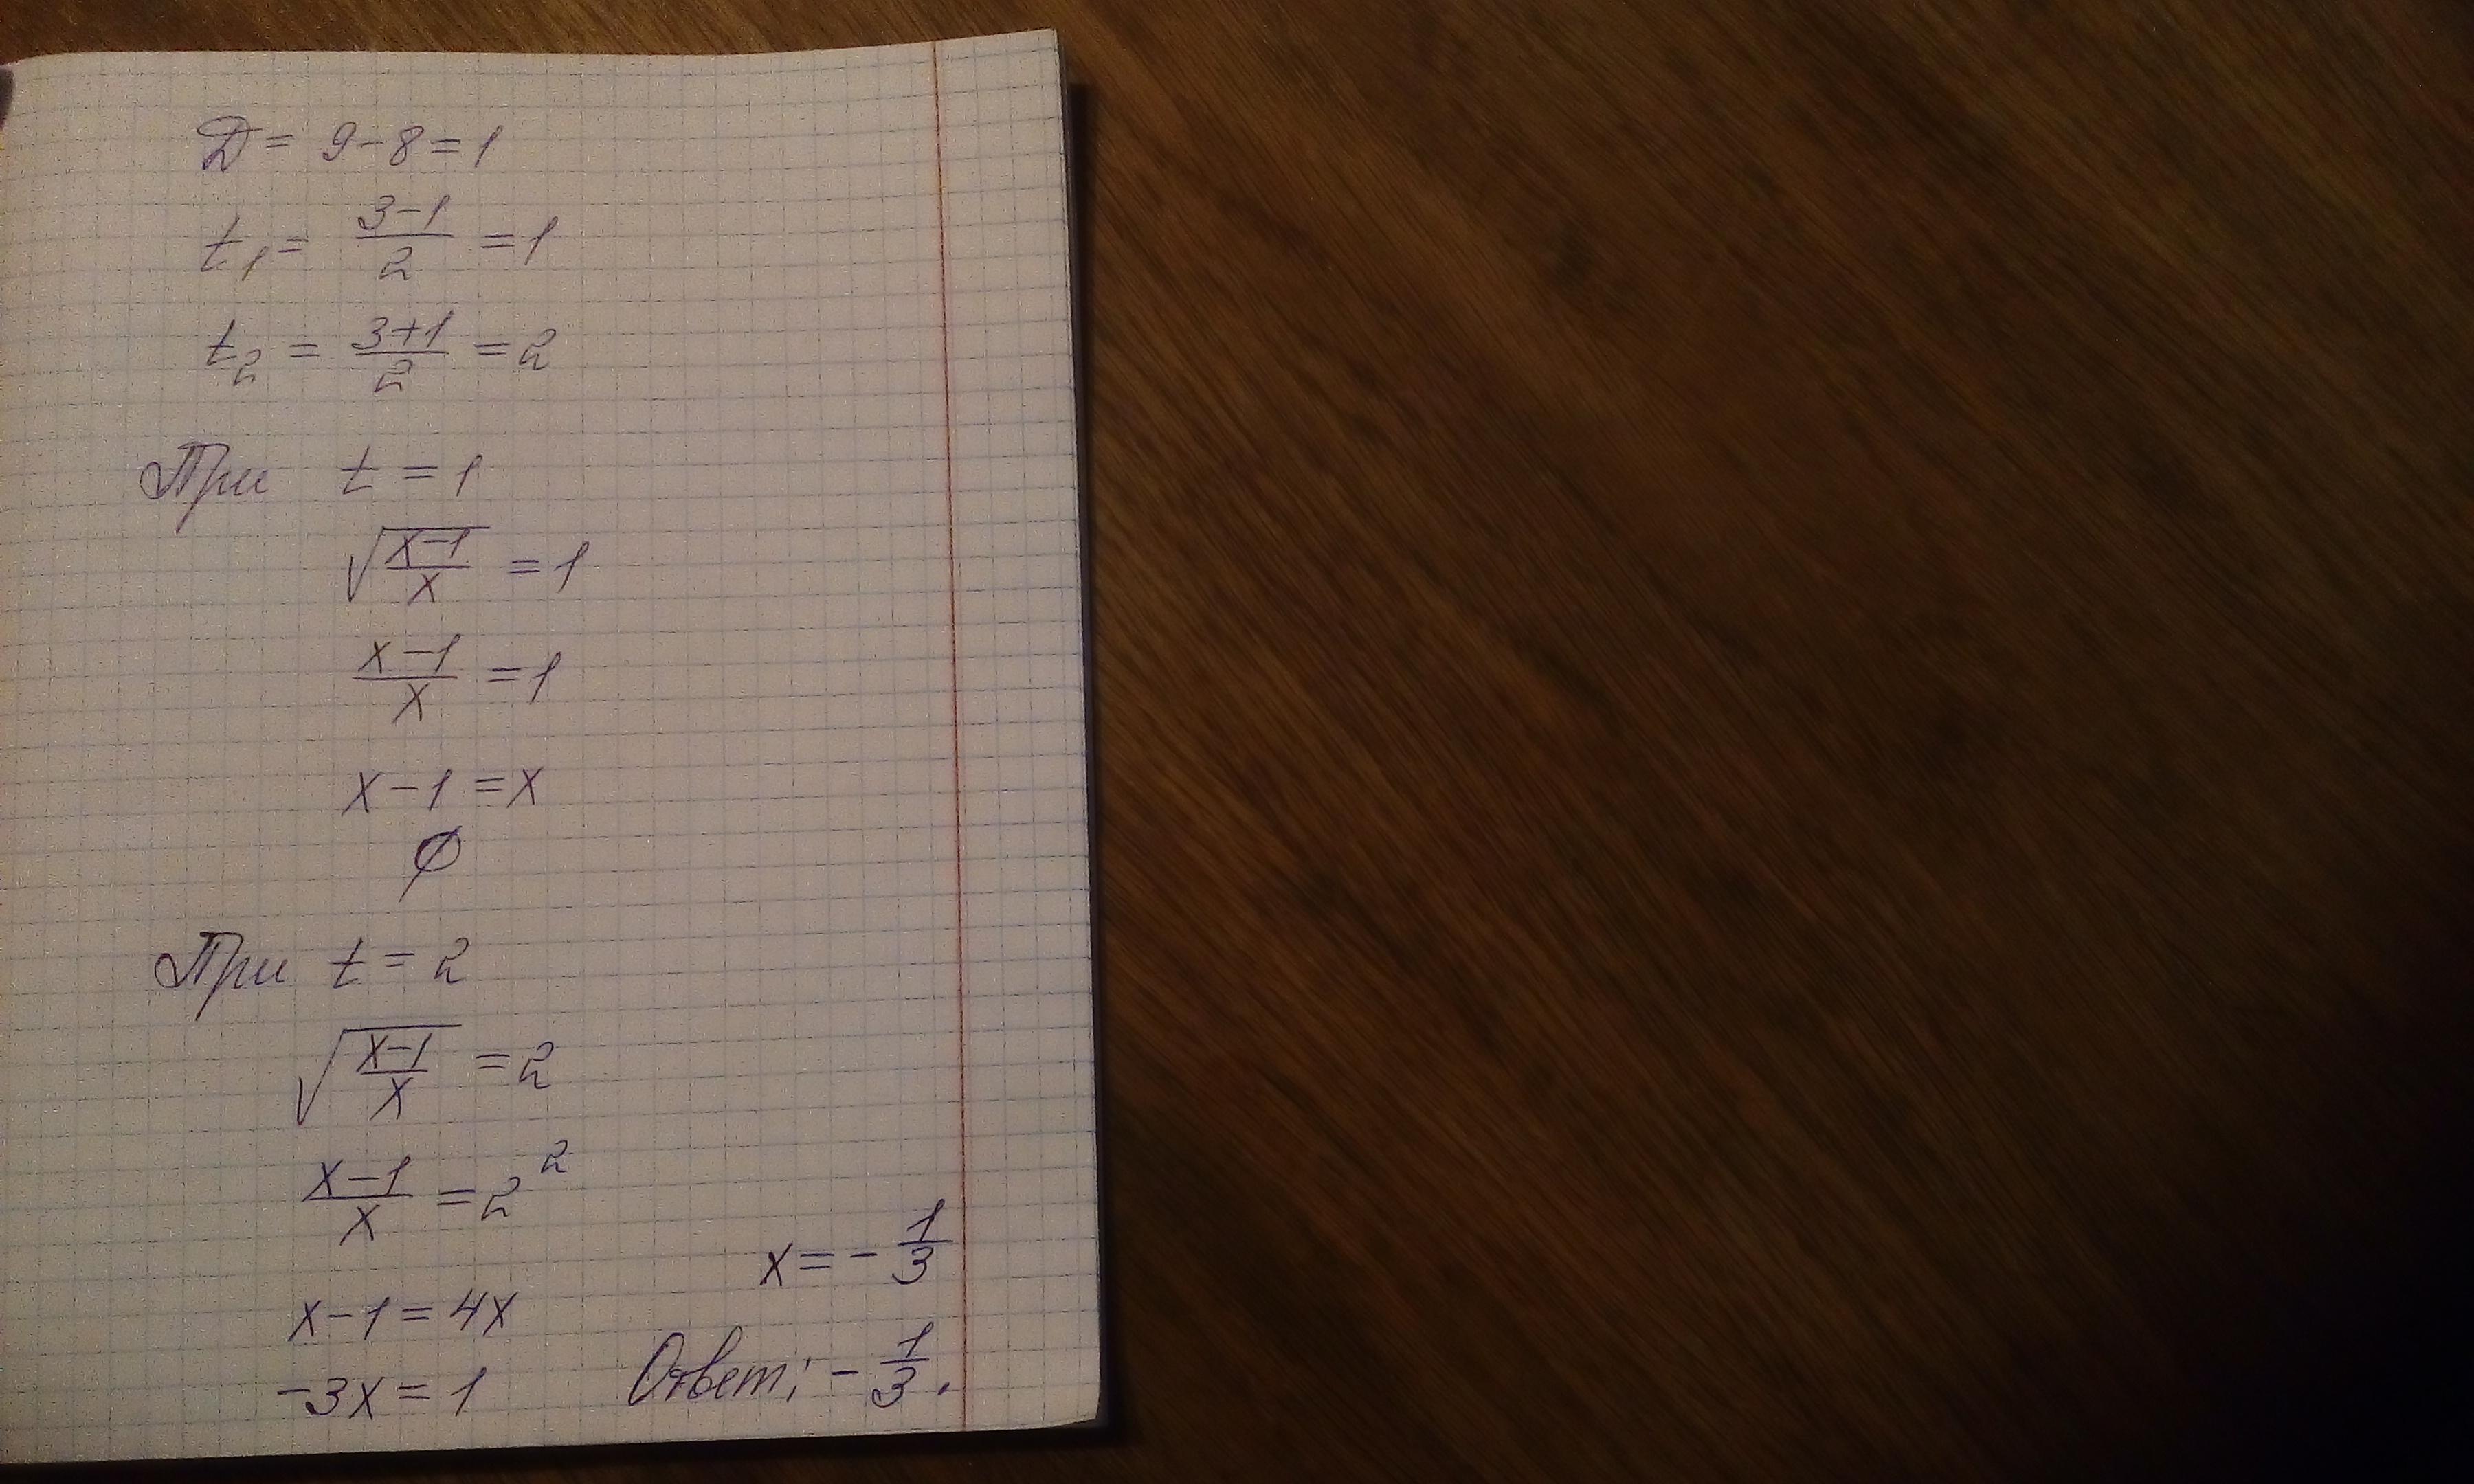 Д = 9 - 8 = 1
t₁ = (3-1)/2 = 1
t₂ = (3+1)/2 = 2
При t = 1
√((x-1)/x) = 1
(x-1)/x = 1
x - 1 = x
∅
При t = 2
√((x-1)/x) = 2
(x-1)/x = 2²
x - 1 = 4x
-3x = 1
x = - 1/3
Ответ: - 1/3.